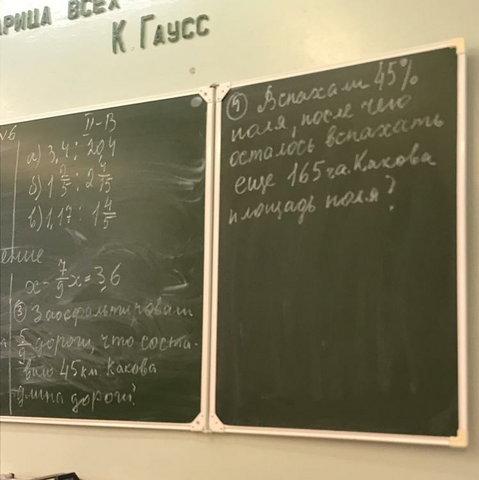 АРИЦА ВСЕХ
К. ГАУСС
№6 II-В
а) 3,4 : 20,4
б) 1 2/5 : 2 4/15
в) 1,17 : 1 4/5
ение
x - 7/9 x = 3,6
③ Заасфальтировали
5/9 дороги, что соста-
вило 45 км. Какова
длина дороги?
④ Вспахали 45%
поля, после чего
осталось вспахать
еще 165 га. Какова
площадь поля?